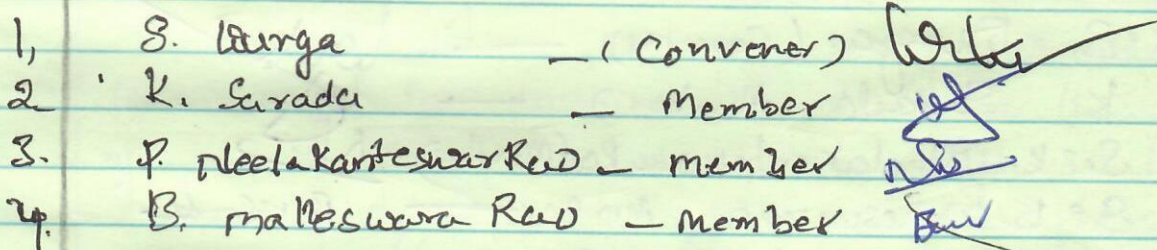 1, S. Durga - (Convener)
2 K. Sarada - Member
3. P. Neelakanteswar Rao - member
4. B. malleswara Rao - member